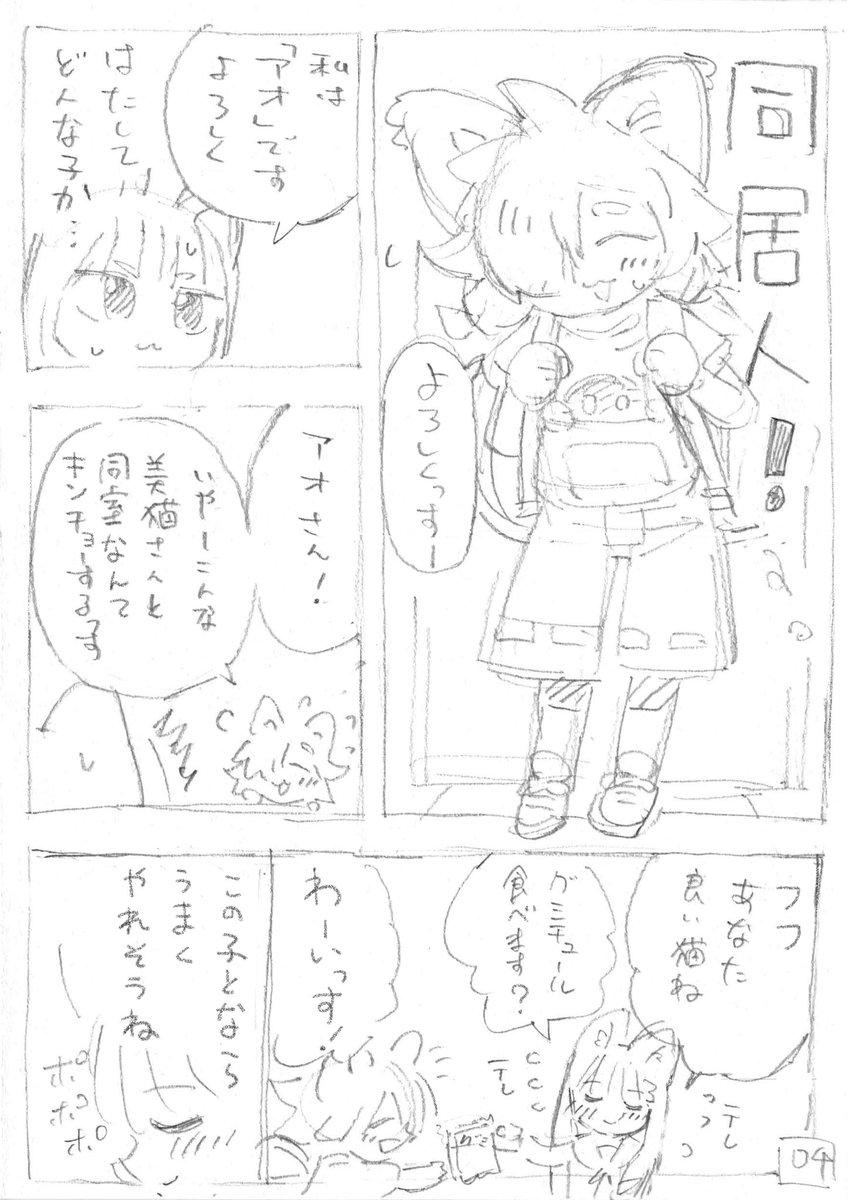 同居人!
よろしくっすー
私は
「アオ」です
よろしく
はたして!!
どんな子か…
アオさん!
いやーこんな
美猫さんと
同室なんて
キンチョーするっす
フフ
あなた
良い猫ね
テレ
ガミチュール
食べます?
テレ
わーいっす!
この子となら
うまく
やれそうね
ポポポポ
04